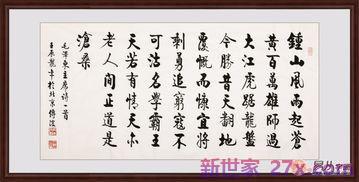 鍾山風雨起蒼
黄百萬雄師過
大江虎踞龍盤
今勝昔天翻地
覆慨而慷宜將
剩勇追窮寇不
可沽名學霸王
天若有情天亦
老人間正道是
滄桑
毛澤東主席詩一首
壬辰龍年於北京
新世家 27x.com